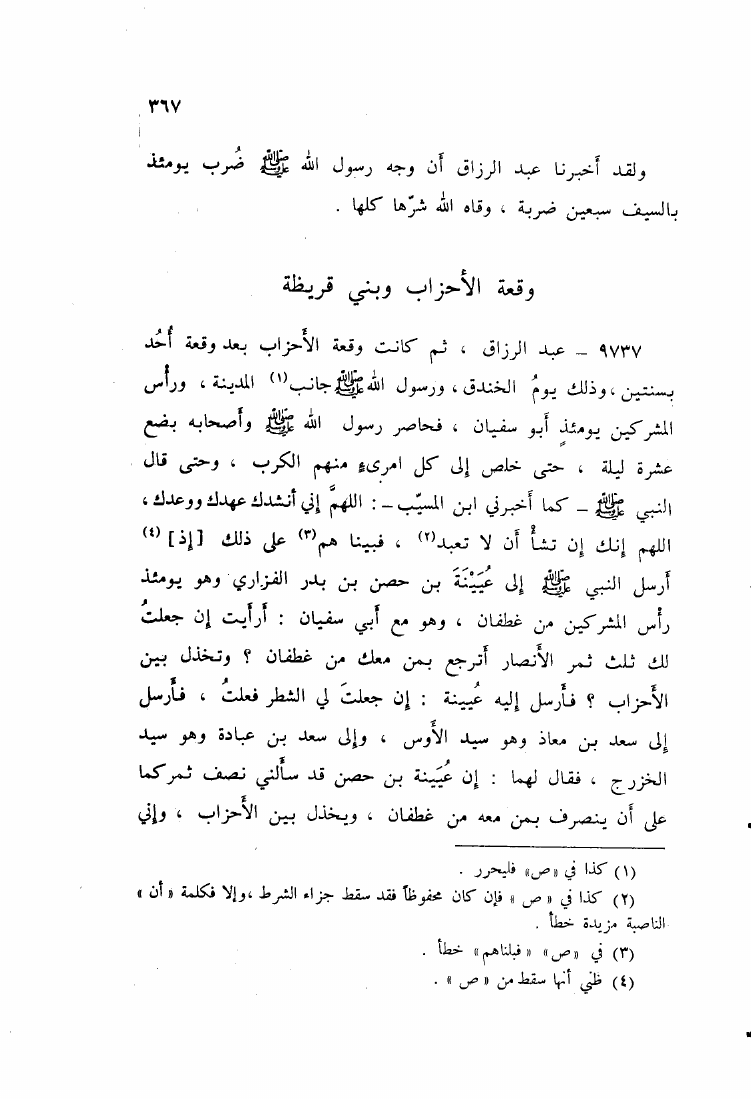 ٣٦٧
ولقد أخبرنا عبد الرزاق أن وجه رسول الله ﷺ ضُرب يومئذ
بالسيف سبعين ضربة ، وقاه الله شرّها كلها .
وقعة الأحزاب وبني قريظة
٩٧٣٧ – عبد الرزاق ، ثم كانت وقعة الأحزاب بعد وقعة أُحُد
بسنتين ، وذلك يومُ الخندق ، ورسول الله ﷺ جانب(١) المدينة ، ورأس
المشركين يومئذٍ أبو سفيان ، فحاصر رسول الله ﷺ وأصحابه بضع
عشرة ليلة ، حتى خلص إلى كل امرىءٍ منهم الكرب ، وحتى قال
النبي ﷺ – كما أخبرني ابن المسيّب – : اللهمَّ إني أنشدك عهدك ووعدك ،
اللهم إنك إن تشأْ أن لا تعبد(٢) ، فبينا هم(٣) على ذلك [إذ](٤)
أرسل النبي ﷺ إلى عُيَيْنَةَ بن حصن بن بدر الفزاري وهو يومئذ
رأس المشركين من غطفان ، وهو مع أبي سفيان : أرأيت إن جعلتُ
لك ثلث ثمر الأنصار أترجع بمن معك من غطفان ؟ وتخذل بين
الأحزاب ؟ فأرسل إليه عُيينة : إن جعلتَ لي الشطر فعلتُ ، فأرسل
إلى سعد بن معاذ وهو سيد الأوس ، وإلى سعد بن عبادة وهو سيد
الخزرج ، فقال لهما : إن عُيَينة بن حصن قد سألني نصف ثمركما
على أن ينصرف بمن معه من غطفان ، ويخذل بين الأحزاب ، وإني
(١) كذا في «ص» فليحرر .
(٢) كذا في « ص » فإن كان محفوظاً فقد سقط جزاء الشرط ، وإلا فكلمة « أن »
الناصبة مزيدة خطأ .
(٣) في «ص» «فبلناهم» خطأ .
(٤) ظني أنها سقط من « ص » .